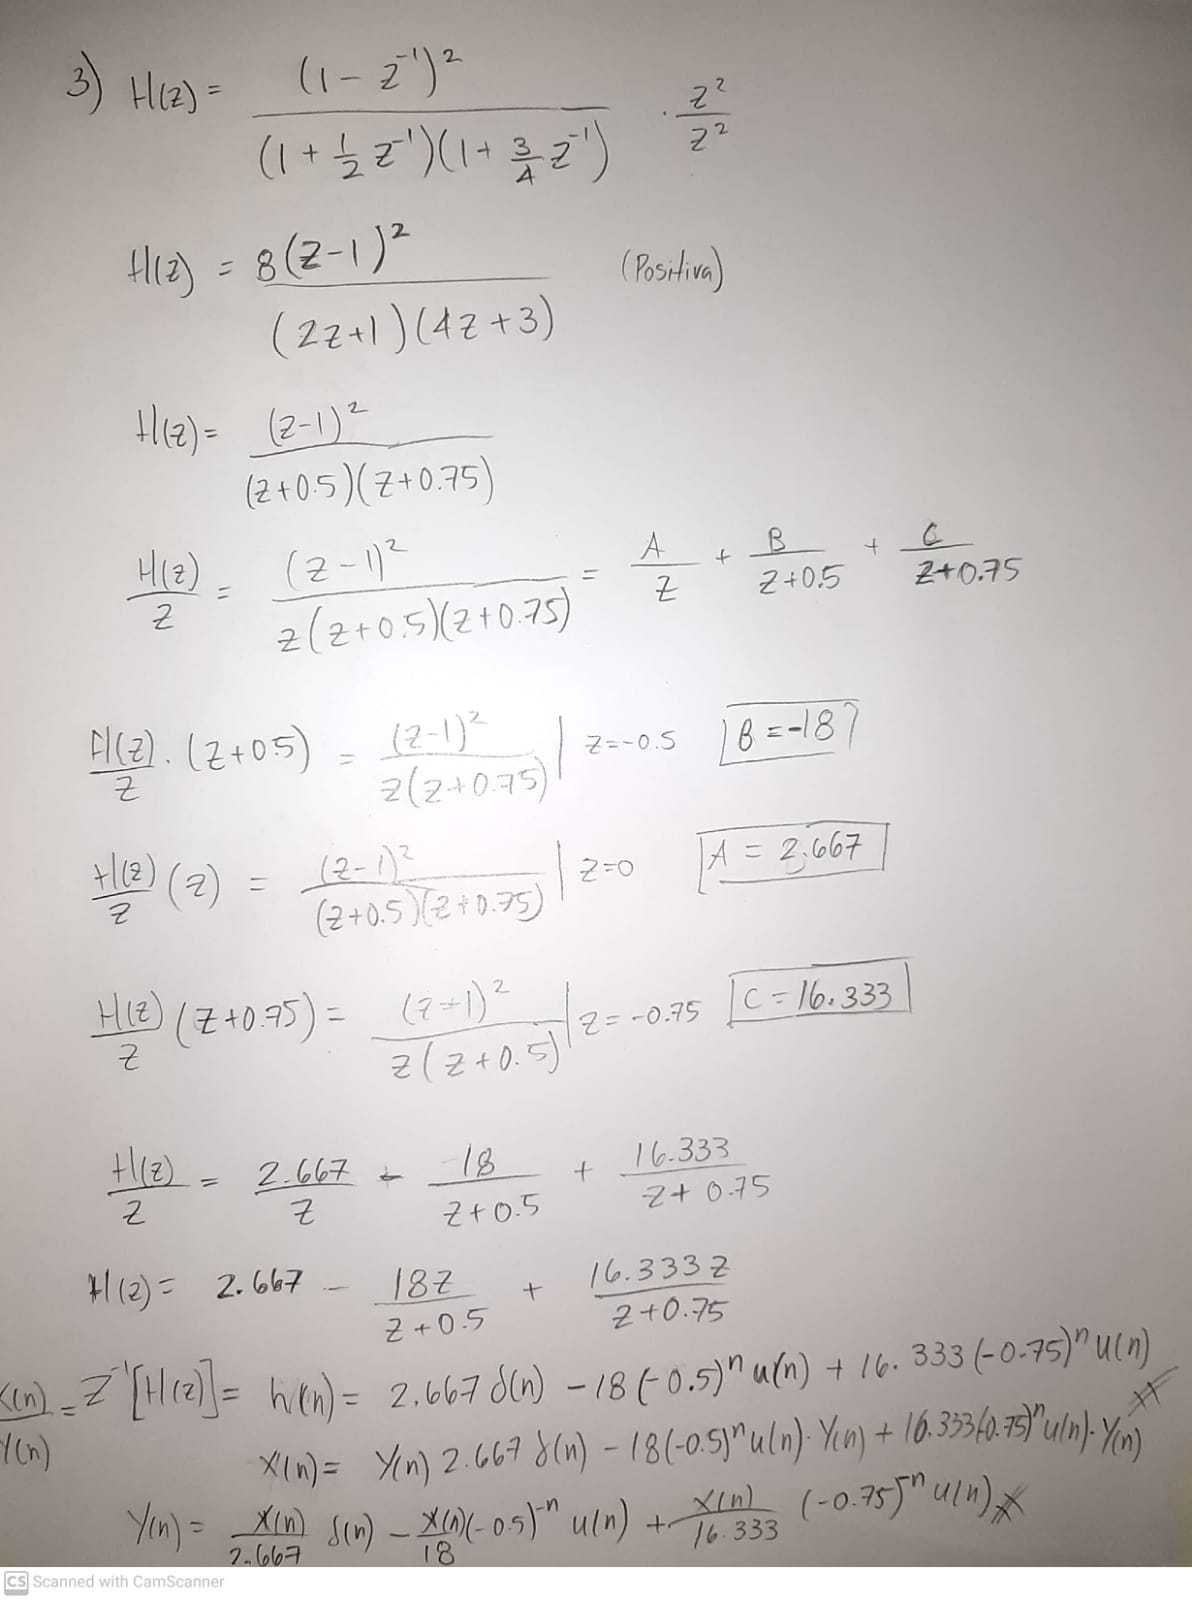 3) H(z) = (1 - z⁻¹)² / (1 + 1/2 z⁻¹)(1 + 3/4 z⁻¹) · z²/z²
H(z) = 8(z-1)² / (2z+1)(4z+3) (Positiva)
H(z) = (z-1)² / (z+0.5)(z+0.75)
H(z)/z = (z-1)² / z(z+0.5)(z+0.75) = A/z + B/z+0.5 + C/z+0.75
H(z)/z · (z+0.5) = (z-1)² / z(z+0.75) | z=-0.5 B = -18
H(z)/z (z) = (z-1)² / (z+0.5)(z+0.75) | z=0 A = 2.667
H(z)/z (z+0.75) = (z-1)² / z(z+0.5) | z=-0.75 C = 16.333
H(z)/z = 2.667/z - 18/z+0.5 + 16.333/z+0.75
H(z) = 2.667 - 18z/z+0.5 + 16.333z/z+0.75
X(n)/Y(n) = Z⁻¹[H(z)] = h(n) = 2.667 δ(n) - 18(-0.5)ⁿ u(n) + 16.333(-0.75)ⁿ u(n)
X(n) = Y(n) 2.667 δ(n) - 18(-0.5)ⁿ u(n)·Y(n) + 16.333(-0.75)ⁿ u(n)·Y(n)
Y(n) = X(n)/2.667 δ(n) - X(n)(-0.5)⁻ⁿ/18 u(n) + X(n)/16.333 (-0.75)⁻ⁿ u(n)
CS Scanned with CamScanner